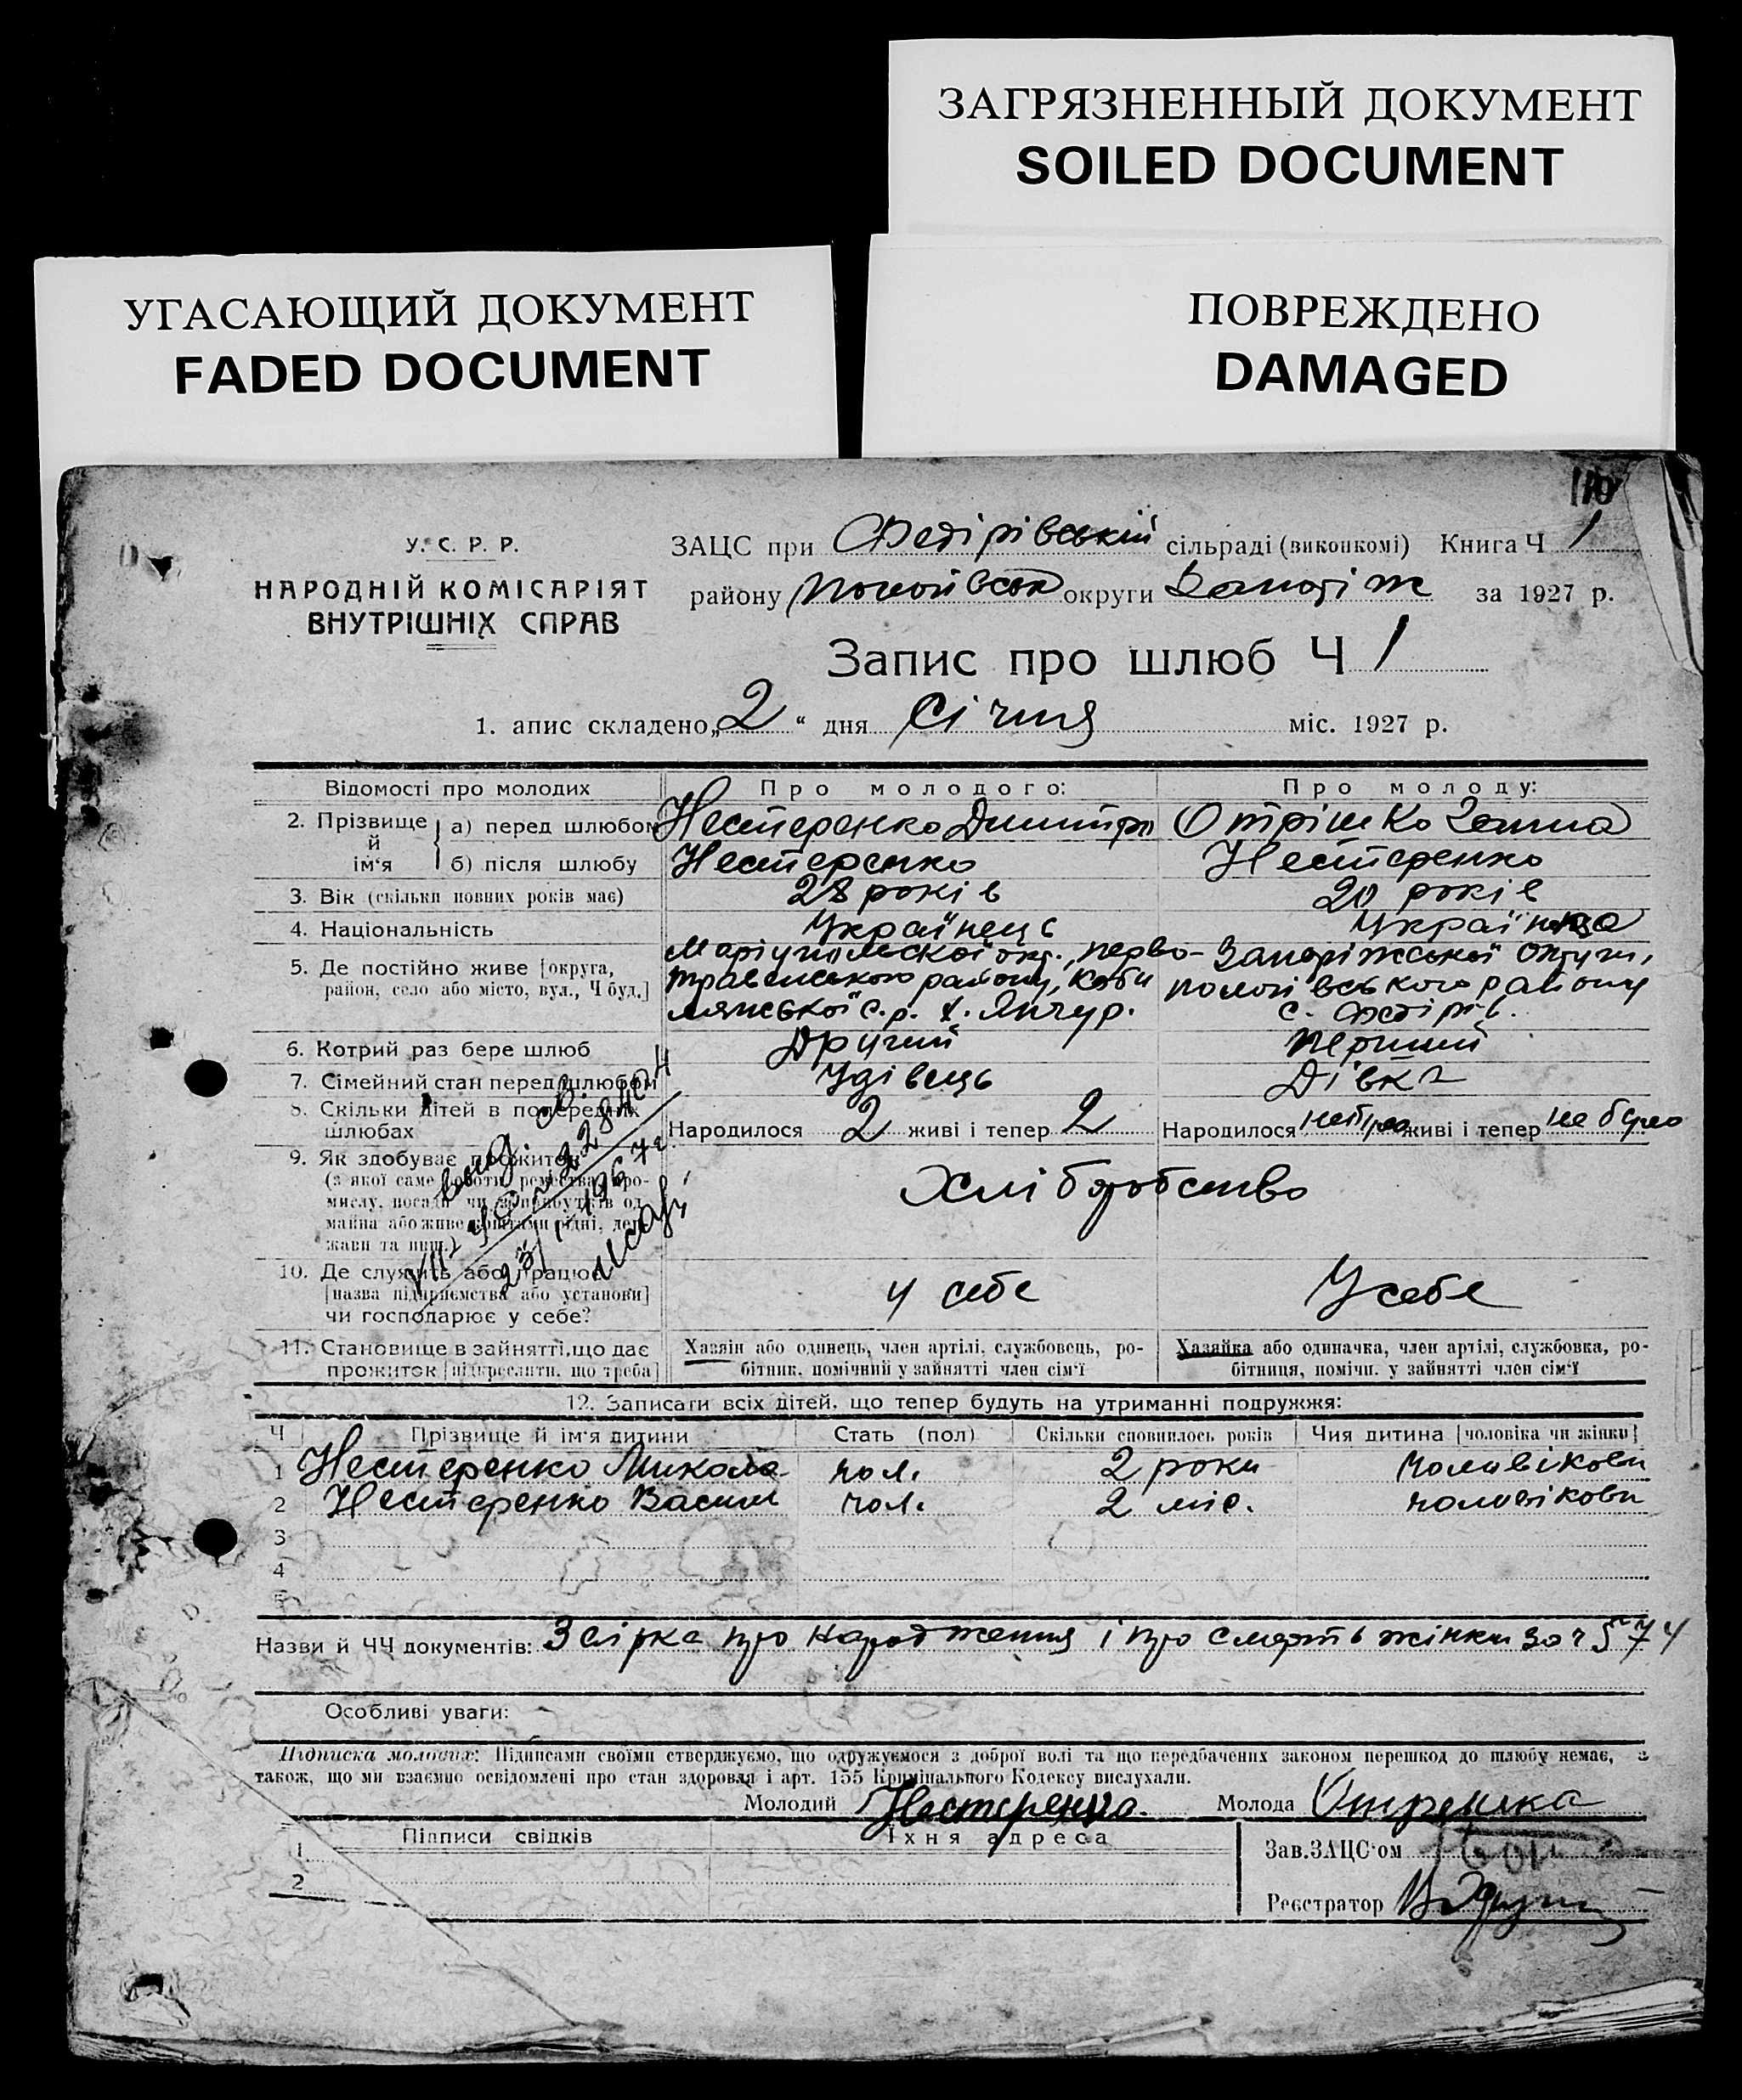 ЗАГРЯЗНЕННЫЙ ДОКУМЕНТ
SOILED DOCUMENT
УГАСАЮЩИЙ ДОКУМЕНТ
FADED DOCUMENT
ПОВРЕЖДЕНО
DAMAGED
110
У. С. Р. Р.
НАРОДНІЙ КОМІСАРІЯТ
ВНУТРІШНІХ СПРАВ
ЗАЦС при Федірівській сільраді (виконкомі) Книга Ч 1
району округи Запоріж за 1927 р.
Запис про шлюб Ч 1
1. апис складено „2“ дня Січня міс. 1927 р.
Відомості про молодих Про молодого: Про молоду:
2. Прізвище й ім'я
а) перед шлюбом Нестеренко Дмитро Отрішко
б) після шлюбу Нестеренко Нестеренко
3. Вік (скільки повних років має) 28 років 20 років
4. Національність Українець Українка
5. Де постійно живе [округа, район, село або місто, вул., Ч буд.]
Маріупільської окр., перво-
травенського району,
с.р. х. Янчур.
Запоріжської Округи,
пологівського району
с. Федірів.
6. Котрий раз бере шлюб Другий Перший
7. Сімейний стан перед шлюбом Удівець Дівка
8. Скільки дітей в попередніх шлюбах Народилося 2 живі і тепер 2 Народилося живі і тепер не було
9. Як здобуває прожиток Хліборобство
(з якої саме роботи, ремества, про-
мислу, посади чи з прибутків од
майна або живе коштами рідні, дер-
жави та инш.)
10. Де служить або працює у себе У себе
[назва підприємства або установи]
чи господарює у себе?
11. Становище в зайнятті, що дає прожиток [підкреслити, що треба]
Хазяін або одинець, член артілі, службовець, ро-
бітник, помічний у зайнятті член сім'ї
Хазяйка або одиначка, член артілі, службовка, ро-
бітниця, помічн. у зайнятті член сім'ї
12. Записати всіх дітей, що тепер будуть на утриманні подружжя:
Ч Прізвище й ім'я дитини Стать (пол) Скільки сповнилось років Чия дитина [чоловіка чи жінки]
1 Нестеренко Микола чол. 2 роки чоловікови
2 Нестеренко Васил чол. 2 міс. чоловікови
3
4
5
Назви й ЧЧ документів: Звірка про народження і про смерть жінки за ч 574
Особливі уваги:
Підписка молодих: Підписами своїми стверджуємо, що одружуємося з доброї волі та що передбачених законом перешкод до шлюбу немає, а
також, що ми взаємно освідомлені про стан здоровля і арт. 155 Кримінального Кодексу вислухали.
Молодий Нестеренко Молода Отрешка
Підписи свідків Їхня адреса
1
2
Зав. ЗАЦС'ом
Реєстратор